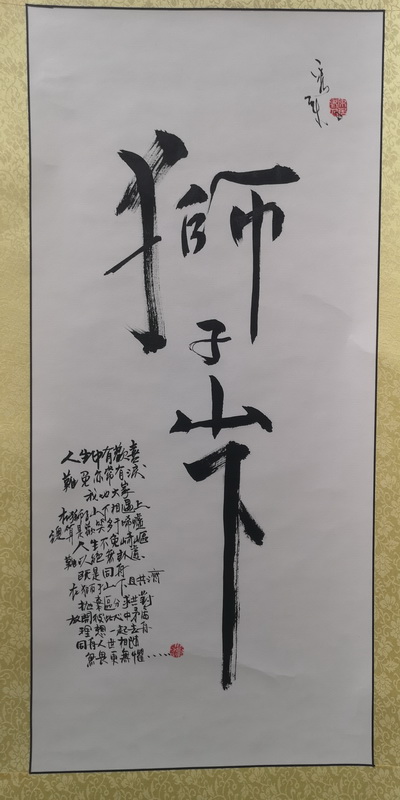 獅子山下
人生中有歡喜
難免亦常有淚
我哋大家
在獅子山下相遇上
總算是歡笑多於唏噓
人生不免崎嶇
難以絕無掛慮
既是同舟
在獅子山下且共濟
拋棄區分求共對
放開彼此心中矛盾
理想一起去追
同舟人誓相隨
無畏更無懼......